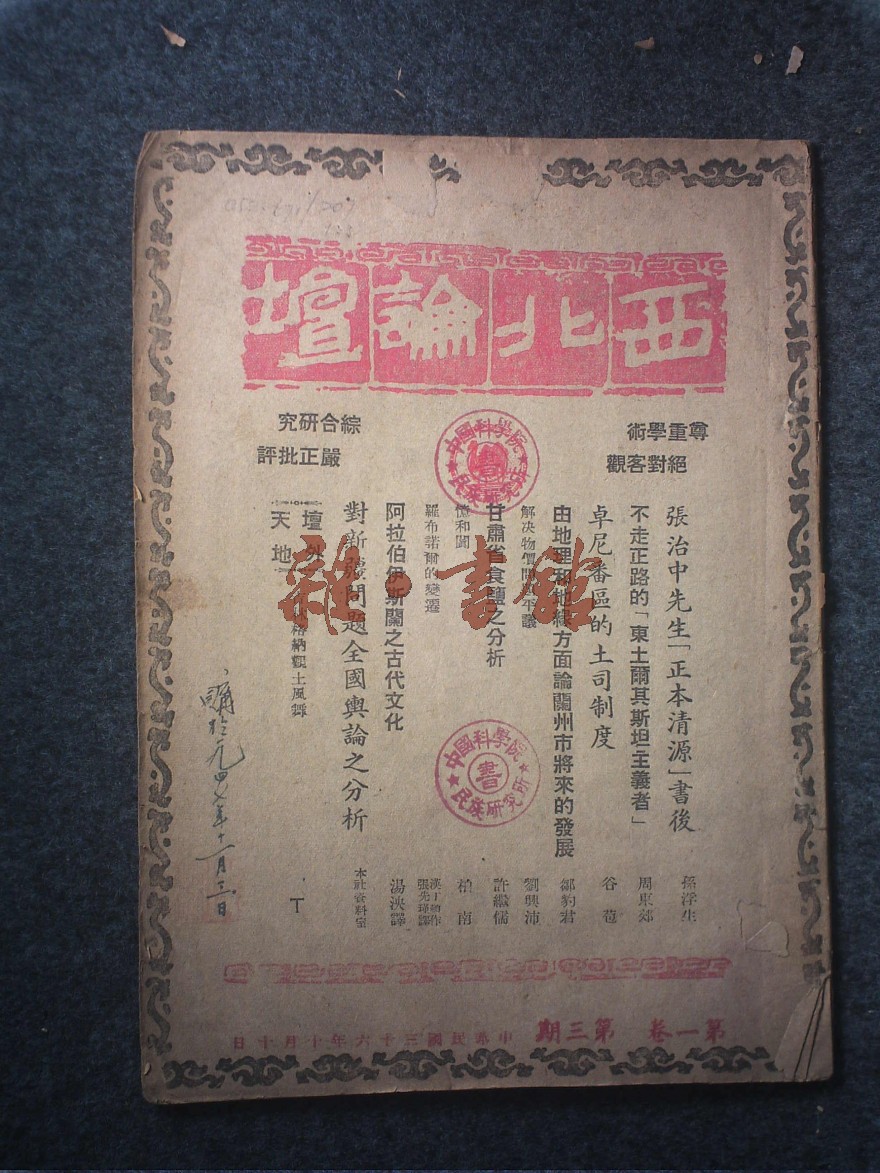 西北論壇
尊重學術
絕對客觀
綜合研究
嚴正批評
張治中先生「正本清源」書後 孫浮生
不走正路的「東土爾其斯坦主義者」 周東郊
卓尼番區的土司制度 谷苞
由地理和地緣方面論蘭州市將來的發展 鄒豹君
解决物價問題平議 劉興沛
甘肅省食鹽之分析 許繼儒
憶和闐 柏南
羅布諾爾的變遷 漢丁頓作 張先瑋譯
阿拉伯伊斯蘭之古代文化 湯泱譯
對新疆問題全國輿論之分析 本社資料室
壇外
天地
格納觀土風舞 T
第一卷 第三期 中華民國三十六年十月十日
中國科學院
民族研究所
中國科學院
書
民族研究所
雜·書館
購於九四七年十一月三日